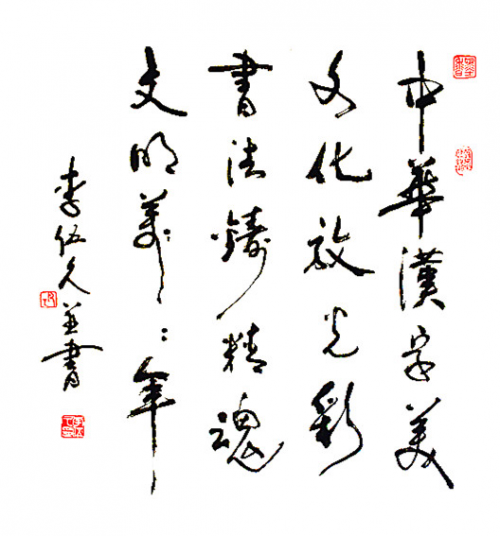 中華漢字美
文化放光彩
書法鑄精魂
文明萬〻年
李伍久并書